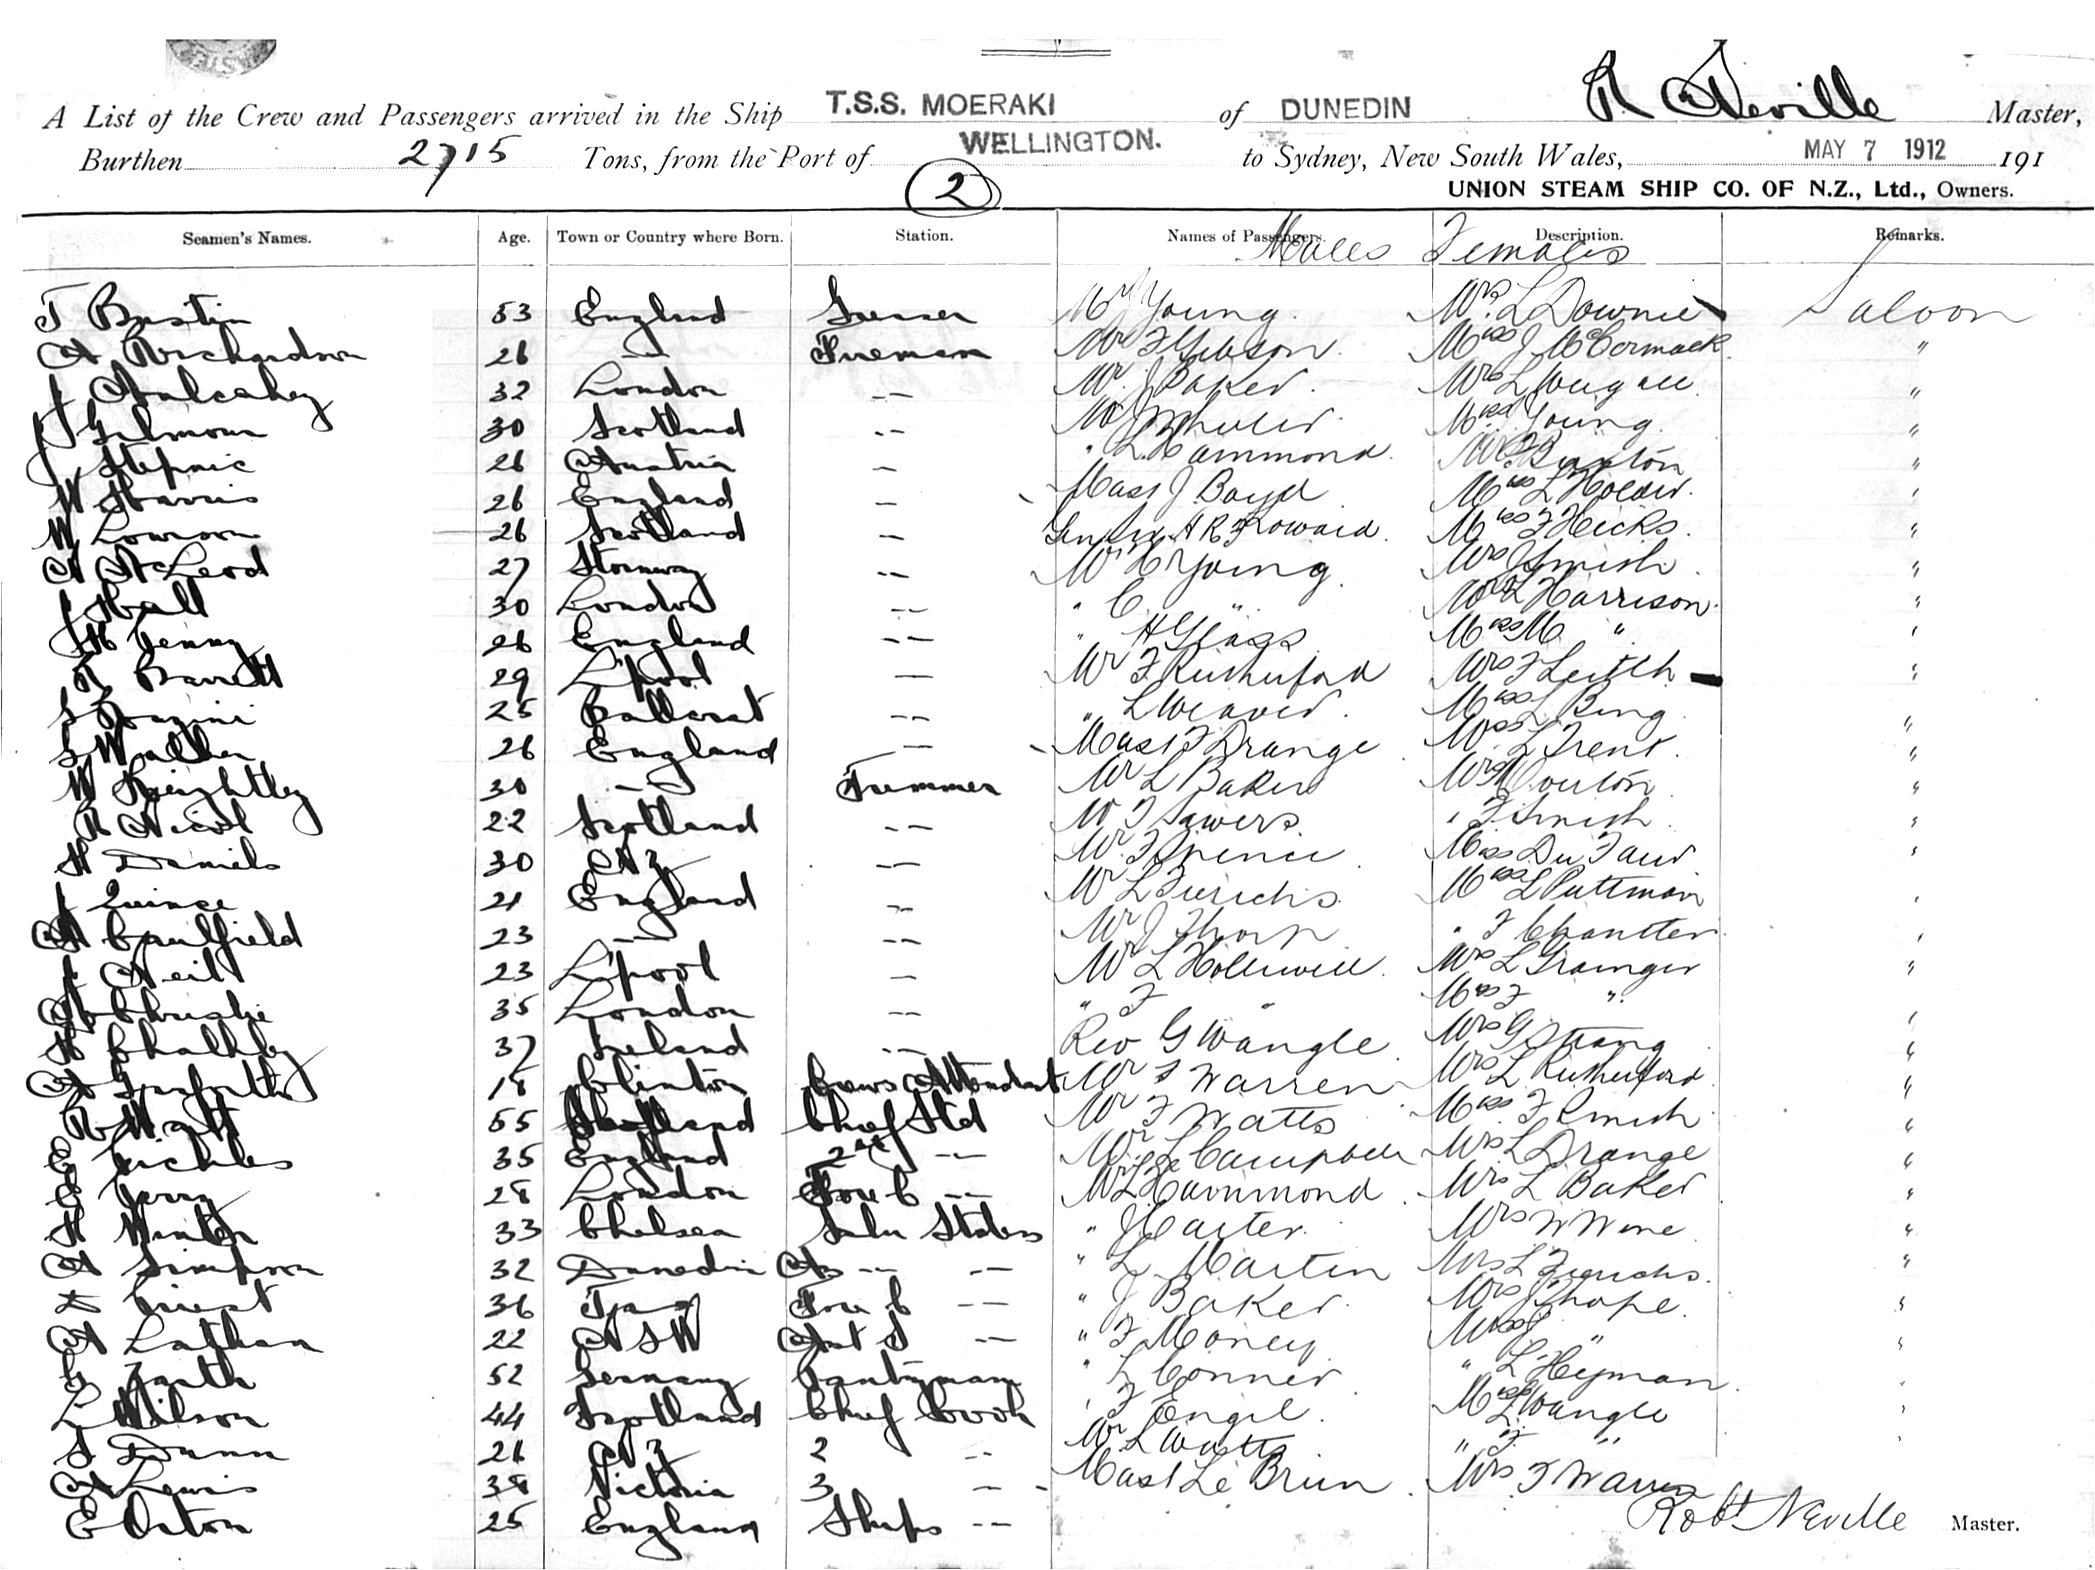 A List of the Crew and Passengers arrived in the Ship T.S.S. MOERAKI of DUNEDIN R Neville Master,
Burthen 2715 Tons, from the Port of WELLINGTON. to Sydney, New South Wales, MAY 7 1912 191
2 UNION STEAM SHIP CO. OF N.Z., Ltd., Owners.
Seamen's Names. Age. Town or Country where Born. Station. Names of Passengers. Males Description. Females Remarks.
T Bustin 53 England Greaser Mr Young. Mrs L Downie Saloon
A Richardson 26 — Fireman Mr F Gibson. Miss J McCormack "
J Mulcahey 32 London -- Mr J Baker. Mrs L Weigall "
J Gilmour 30 Scotland -- Mr J Wheeler. Miss Young. "
J Stepnic 26 Austria — " L Hammond. Mrs F Buxton "
W Harris 26 England — Mast J Boyd Miss L Holder. "
W Lowson 26 Scotland — A R Howard. Miss F Hicks. "
A McLeod 27 Stornway -- Mr H Young. Mrs J Smish. "
J Hall 30 London -- " C " Mrs L Harrison. "
H Jenny 26 England -- " H Glass Miss M " "
R Barrett 29 L'pool — Mr F Rutherford Mrs F Leitch "
25 Ballarat -- " L Weaver. Miss L Bing "
S Walker 26 England -- Mast F Drange L Trent. "
W Keightley 30 -- Trimmer Mr L Baker Mrs Mouton "
R Nicol 22 Scotland -- Mr F Sawers. " F Smish. "
H Daniels 30 NZ -- Mr F Spence Miss Du Faur "
J Quince 21 England -- Mr L Fierichs. Miss L Puttman "
A Caulfield 23 — -- Mr J Thorp " F Chantler. "
J Neil 23 L'pool — Mr L Holliwell. Mrs L Grainger "
A Christie 35 London -- " F " Miss F " "
H Chalkley 37 Ireland -- Rev G Wangle. Mrs G Strang "
A 18 Clinton Crews Attendant Mr F Warren Mrs L Rutherford "
R Watt 55 Shetland Chief Std Mr F Watts Miss F Smish "
E Sickles 35 England 2nd -- Mr L Campbell Mrs L Drange "
E Jerry 28 London Fore C -- Mr L Hammond. Mrs L Baker "
H Winter 33 Chelsea " J Carter. Mrs W Wine "
A Simpson 32 Dunedin -- -- " L Martin Mrs L Fierichs. "
D Priest 36 Fore C -- " J Baker. Mrs J Thorpe. "
A Lathan 22 NSW -- " F Money. Miss J " "
G Barth 52 Germany Pantryman " L Conner. " L Heyman. "
L Wilson 44 Scotland Chief Cook " F Engel. Miss L Wangle "
S Dunn 26 NZ 2 -- Mr L Watts " F "
A Lewis 38 Victoria 3 -- Mast Le Brun. Mrs F Warren
E Orton 25 England Ships -- Robt Neville Master.